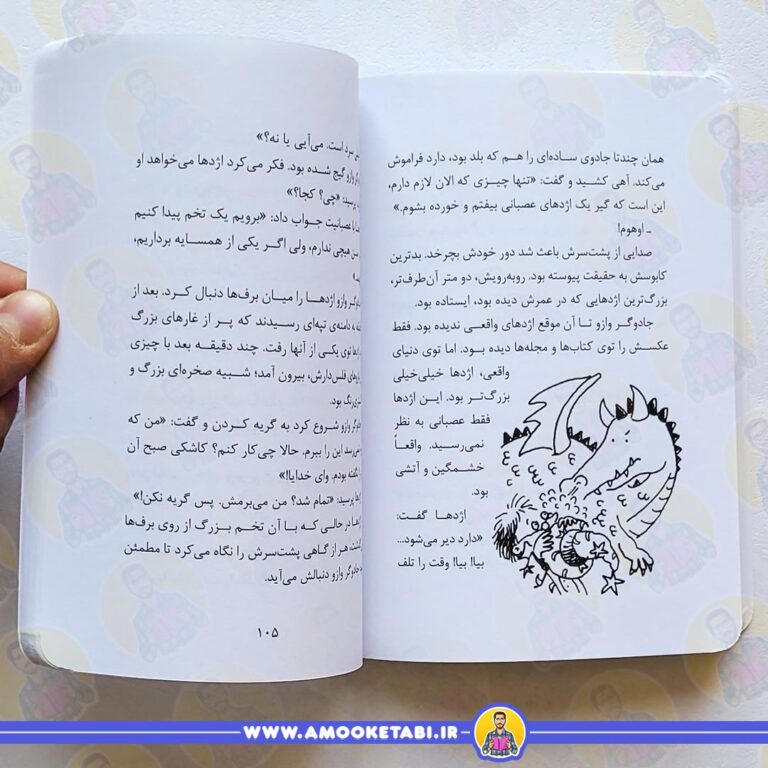 همان چندتا جادوی ساده‌ای را هم که بلد بود، دارد فراموش
می‌کند. آهی کشید و گفت: «تنها چیزی که الان لازم دارم،
این است که گیر یک اژدهای عصبانی بیفتم و خورده بشوم.»
ـ اوهوم!
صدایی از پشت‌سرش باعث شد دور خودش بچرخد. بدترین
کابوسش به حقیقت پیوسته بود. روبه‌رویش، دو متر آن‌طرف‌تر،
بزرگ‌ترین اژدهایی که در عمرش دیده بود، ایستاده بود.
جادوگر وازو تا آن موقع اژدهای واقعی ندیده بود. فقط
عکسش را توی کتاب‌ها و مجله‌ها دیده بود. اما توی دنیای
واقعی، اژدها خیلی‌خیلی
بزرگ‌تر بود. این اژدها
فقط عصبانی به نظر
نمی‌رسید. واقعاً
خشمگین و آتشی
بود.
اژدها گفت:
«دارد دیر می‌شود...
بیا! بیا! وقت را تلف
سرد است. می‌آیی یا نه؟»
وازو گیج شده بود. فکر می‌کرد اژدها می‌خواهد او
پرسید: «چی؟ کجا؟»
با عصبانیت جواب داد: «برویم یک تخم پیدا کنیم
من هیچی ندارم، ولی اگر یکی از همسایه برداریم،
وازو اژدها را میان برف‌ها دنبال کرد. بعد از
دامنه‌ی تپه‌ای رسیدند که پر از غارهای بزرگ
توی یکی از آنها رفت. چند دقیقه بعد با چیزی
فلس‌دارش، بیرون آمد؛ شبیه صخره‌ای بزرگ و
بود.
وازو شروع کرد به گریه کردن و گفت: «من که
این را ببرم. حالا چی‌کار کنم؟ کاشکی صبح آن
بودم. وای خدایا!»
پرسید: «تمام شد؟ من می‌برمش. پس گریه نکن!»
در حالی که با آن تخم بزرگ از روی برف‌ها
هر از گاهی پشت‌سرش را نگاه می‌کرد تا مطمئن
جادوگر وازو دنبالش می‌آید.
۱۰۵
WWW.AMOOKETABI.IR